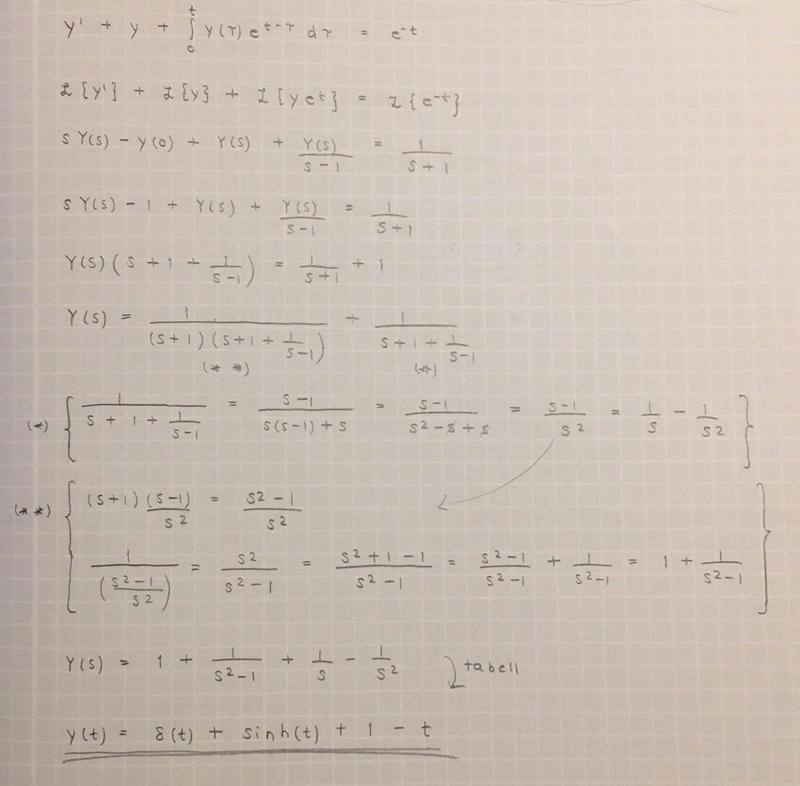 y' + y + ∫₀ᵗ y(τ) e^(t-τ) dτ = e^(-t)
ℒ{y'} + ℒ{y} + ℒ{y e^t} = ℒ{e^(-t)}
s Y(s) - y(0) + Y(s) + Y(s)/(s-1) = 1/(s+1)
s Y(s) - 1 + Y(s) + Y(s)/(s-1) = 1/(s+1)
Y(s) (s + 1 + 1/(s-1)) = 1/(s+1) + 1
Y(s) = 1/((s+1)(s+1+1/(s-1))) + 1/(s+1+1/(s-1))
(* *) (*)
(*) { 1/(s+1+1/(s-1)) = (s-1)/(s(s-1)+s) = (s-1)/(s²-s+s) = (s-1)/s² = 1/s - 1/s² }
(* *) { (s+1) (s-1)/s² = (s²-1)/s²
1/((s²-1)/s²) = s²/(s²-1) = (s²+1-1)/(s²-1) = (s²-1)/(s²-1) + 1/(s²-1) = 1 + 1/(s²-1) }
Y(s) = 1 + 1/(s²-1) + 1/s - 1/s² tabell
y(t) = δ(t) + sinh(t) + 1 - t